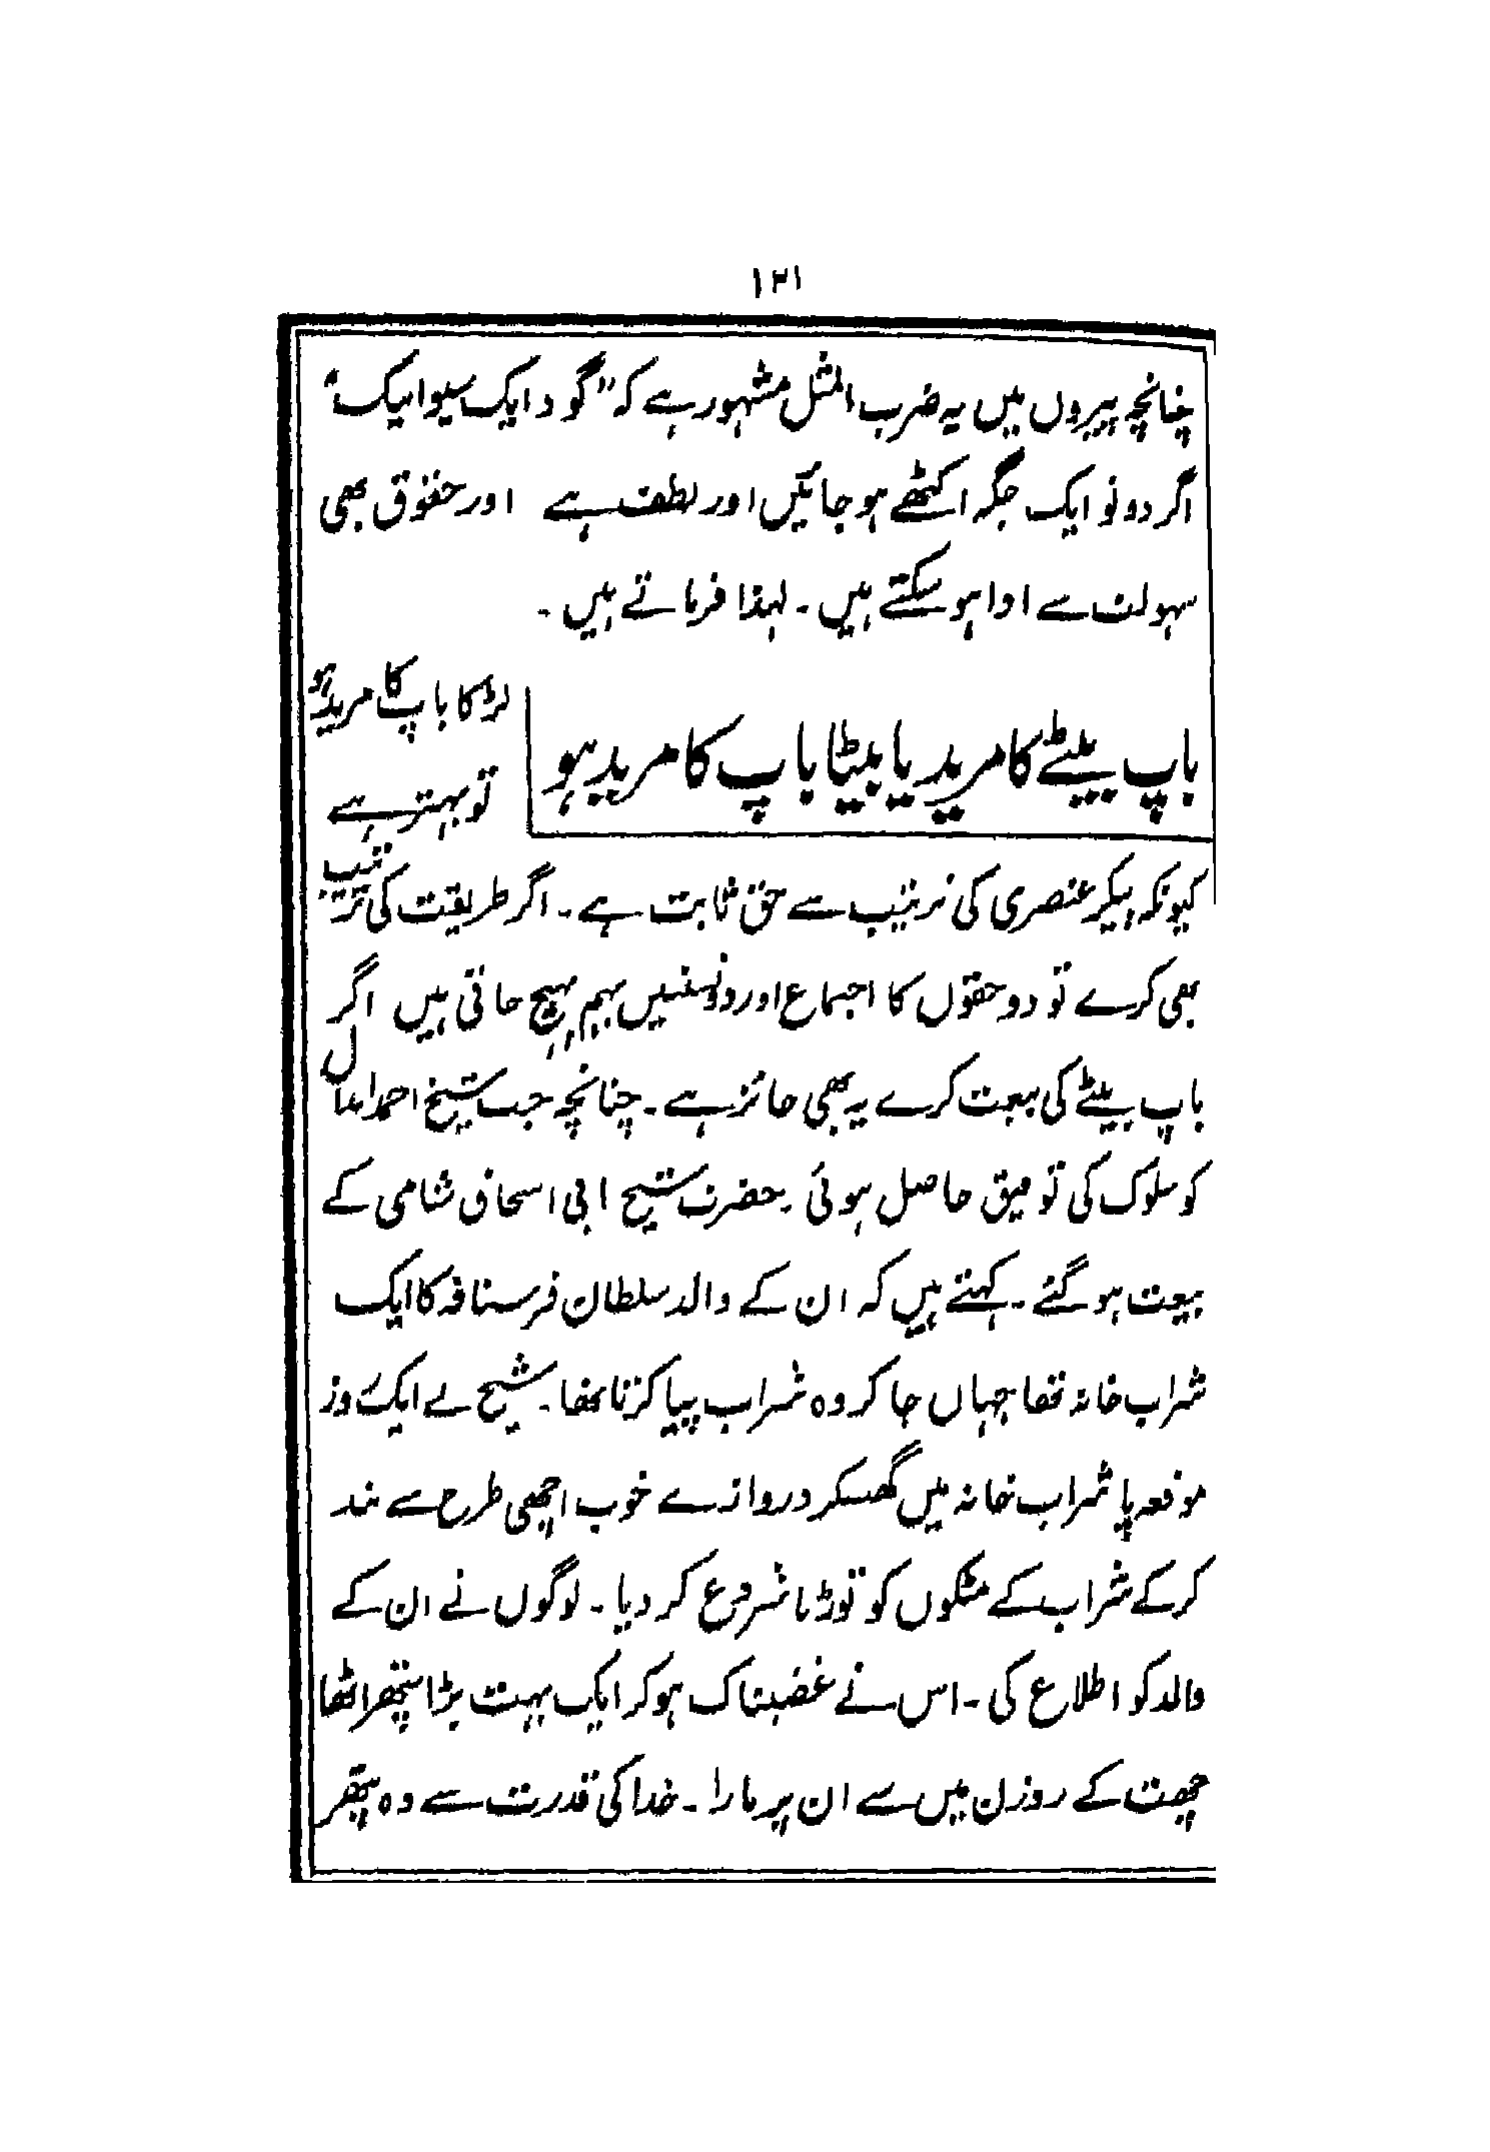 ۱۲۱
چنانچہ پیروں میں یہ ضرب المثل مشہور ہے کہ "گود ایک سیوا نیک"
اگر دونو ایک جگہ اکٹھے ہو جائیں اور لطف ہے اور حقوق بھی
سہولت سے ادا ہو سکتے ہیں ۔ لہذا فرماتے ہیں ۔
باپ بیٹے کا مرید یا بیٹا باپ کا مرید ہو
لڑکا باپ کا مرید ہو
تو بہتر ہے
کیونکہ پیکر عنصری کی ترتیب سے حق ثابت ہے ۔ اگر طریقت کی ترتیب
بھی کرے تو دو حقوں کا اجتماع اور دو نسبتیں بہم پہنچ جاتی ہیں اگر
باپ بیٹے کی بیعت کرے یہ بھی جائز ہے ۔ چنانچہ جب شیخ احمد ابدال
کو سلوک کی توفیق حاصل ہوئی ۔ حضرت شیخ ابی اسحاق شامی کے
بیعت ہو گئے ۔ کہتے ہیں کہ ان کے والد سلطان فرسنافہ کا ایک
شراب خانہ تھا جہاں جا کر وہ شراب پیا کرتا تھا ۔ شیخ نے ایک روز
موقعہ پا شراب خانہ میں گھسکر دروازے خوب اچھی طرح سے بند
کر کے شراب کے مٹکوں کو توڑنا شروع کر دیا ۔ لوگوں نے ان کے
والد کو اطلاع کی ۔ اس نے غضبناک ہو کر ایک بہت بڑا پتھر اٹھا
چھت کے روزن میں سے ان پر مارا ۔ خدا کی قدرت سے وہ پتھر